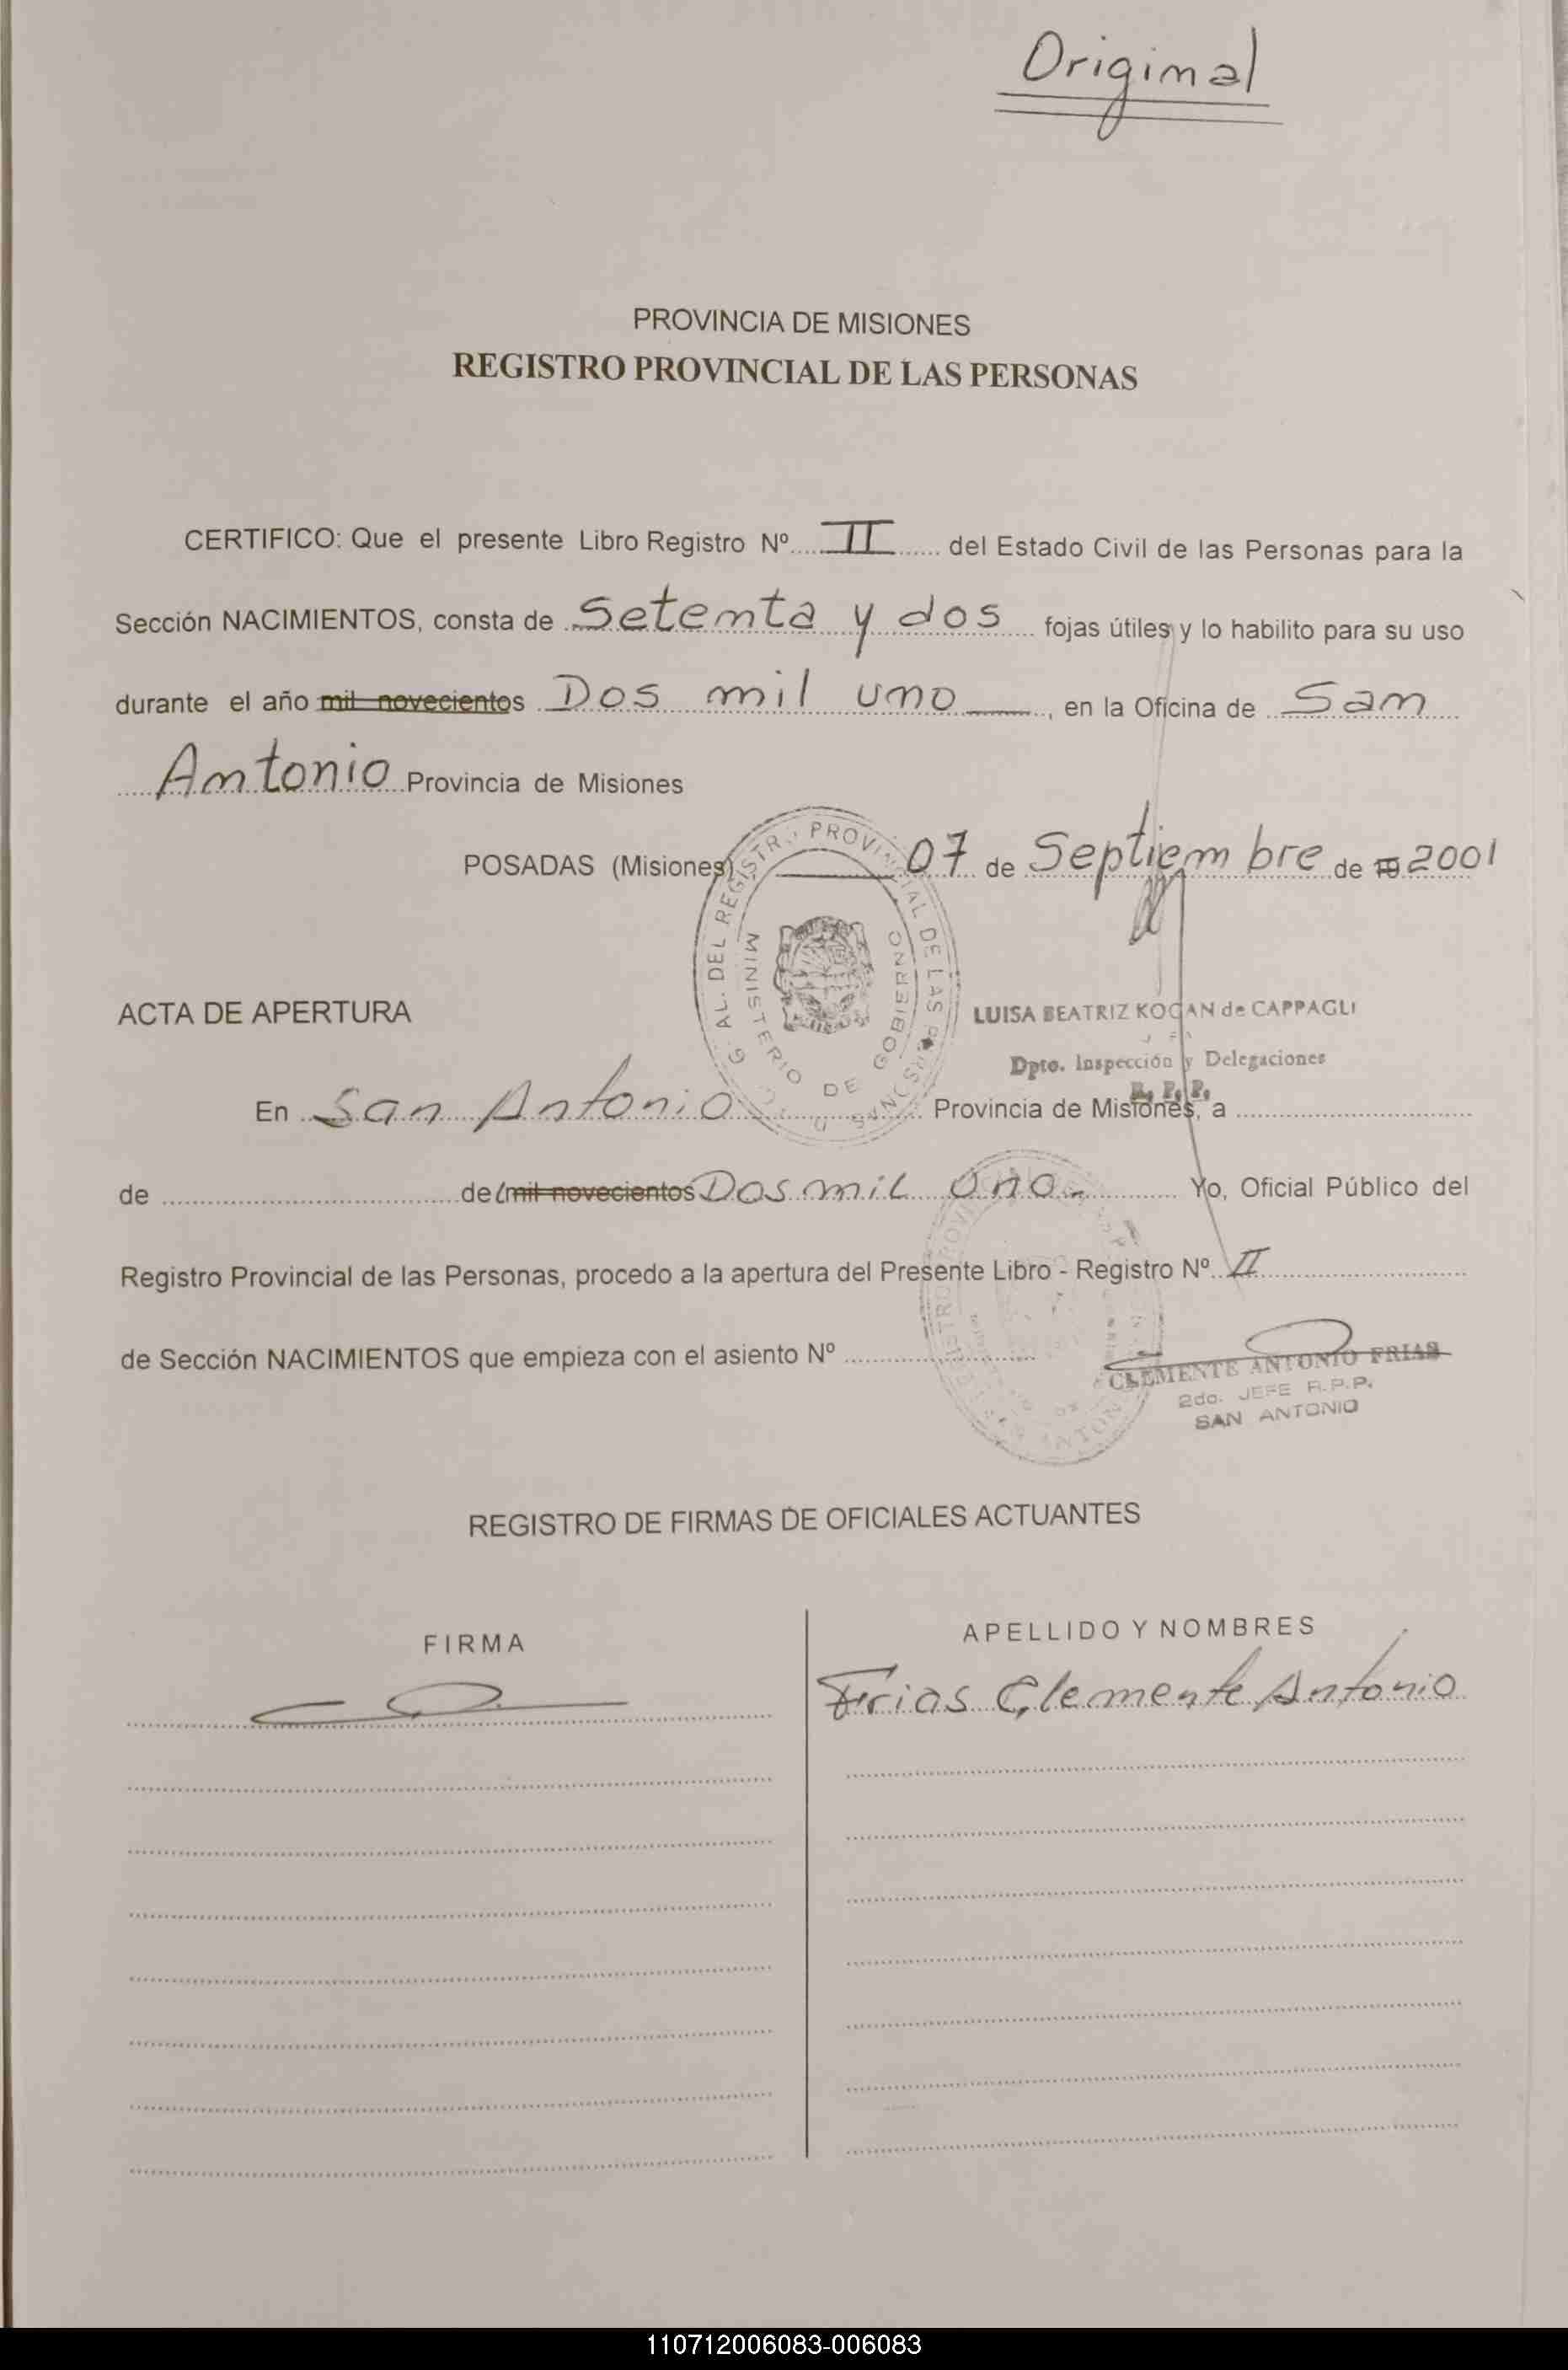 Original
PROVINCIA DE MISIONES
REGISTRO PROVINCIAL DE LAS PERSONAS
CERTIFICO: Que el presente Libro Registro Nº II del Estado Civil de las Personas para la
Sección NACIMIENTOS, consta de Setenta y dos fojas útiles y lo habilito para su uso
durante el año mil novecientos Dos mil uno, en la Oficina de San
Antonio Provincia de Misiones
POSADAS (Misiones) 07 de Septiembre de 19 2001
G AL. DEL REGISTR. PROVINCIAL DE LAS PERSONAS
MINISTERIO DE GOBIERNO
LUISA BEATRIZ KOGAN de CAPPAGLI
Dpto. Inspección y Delegaciones
R. P. P.
ACTA DE APERTURA
En San Antonio Provincia de Misiones, a
de de mil novecientos Dos mil Uno. Yo, Oficial Público del
Registro Provincial de las Personas, procedo a la apertura del Presente Libro - Registro Nº II
de Sección NACIMIENTOS que empieza con el asiento Nº
CLEMENTE ANTONIO FRIAS
2do. JEFE R.P.P.
SAN ANTONIO
REGISTRO DE FIRMAS DE OFICIALES ACTUANTES
FIRMA
APELLIDO Y NOMBRES
Frias Clemente Antonio
110712006083-006083